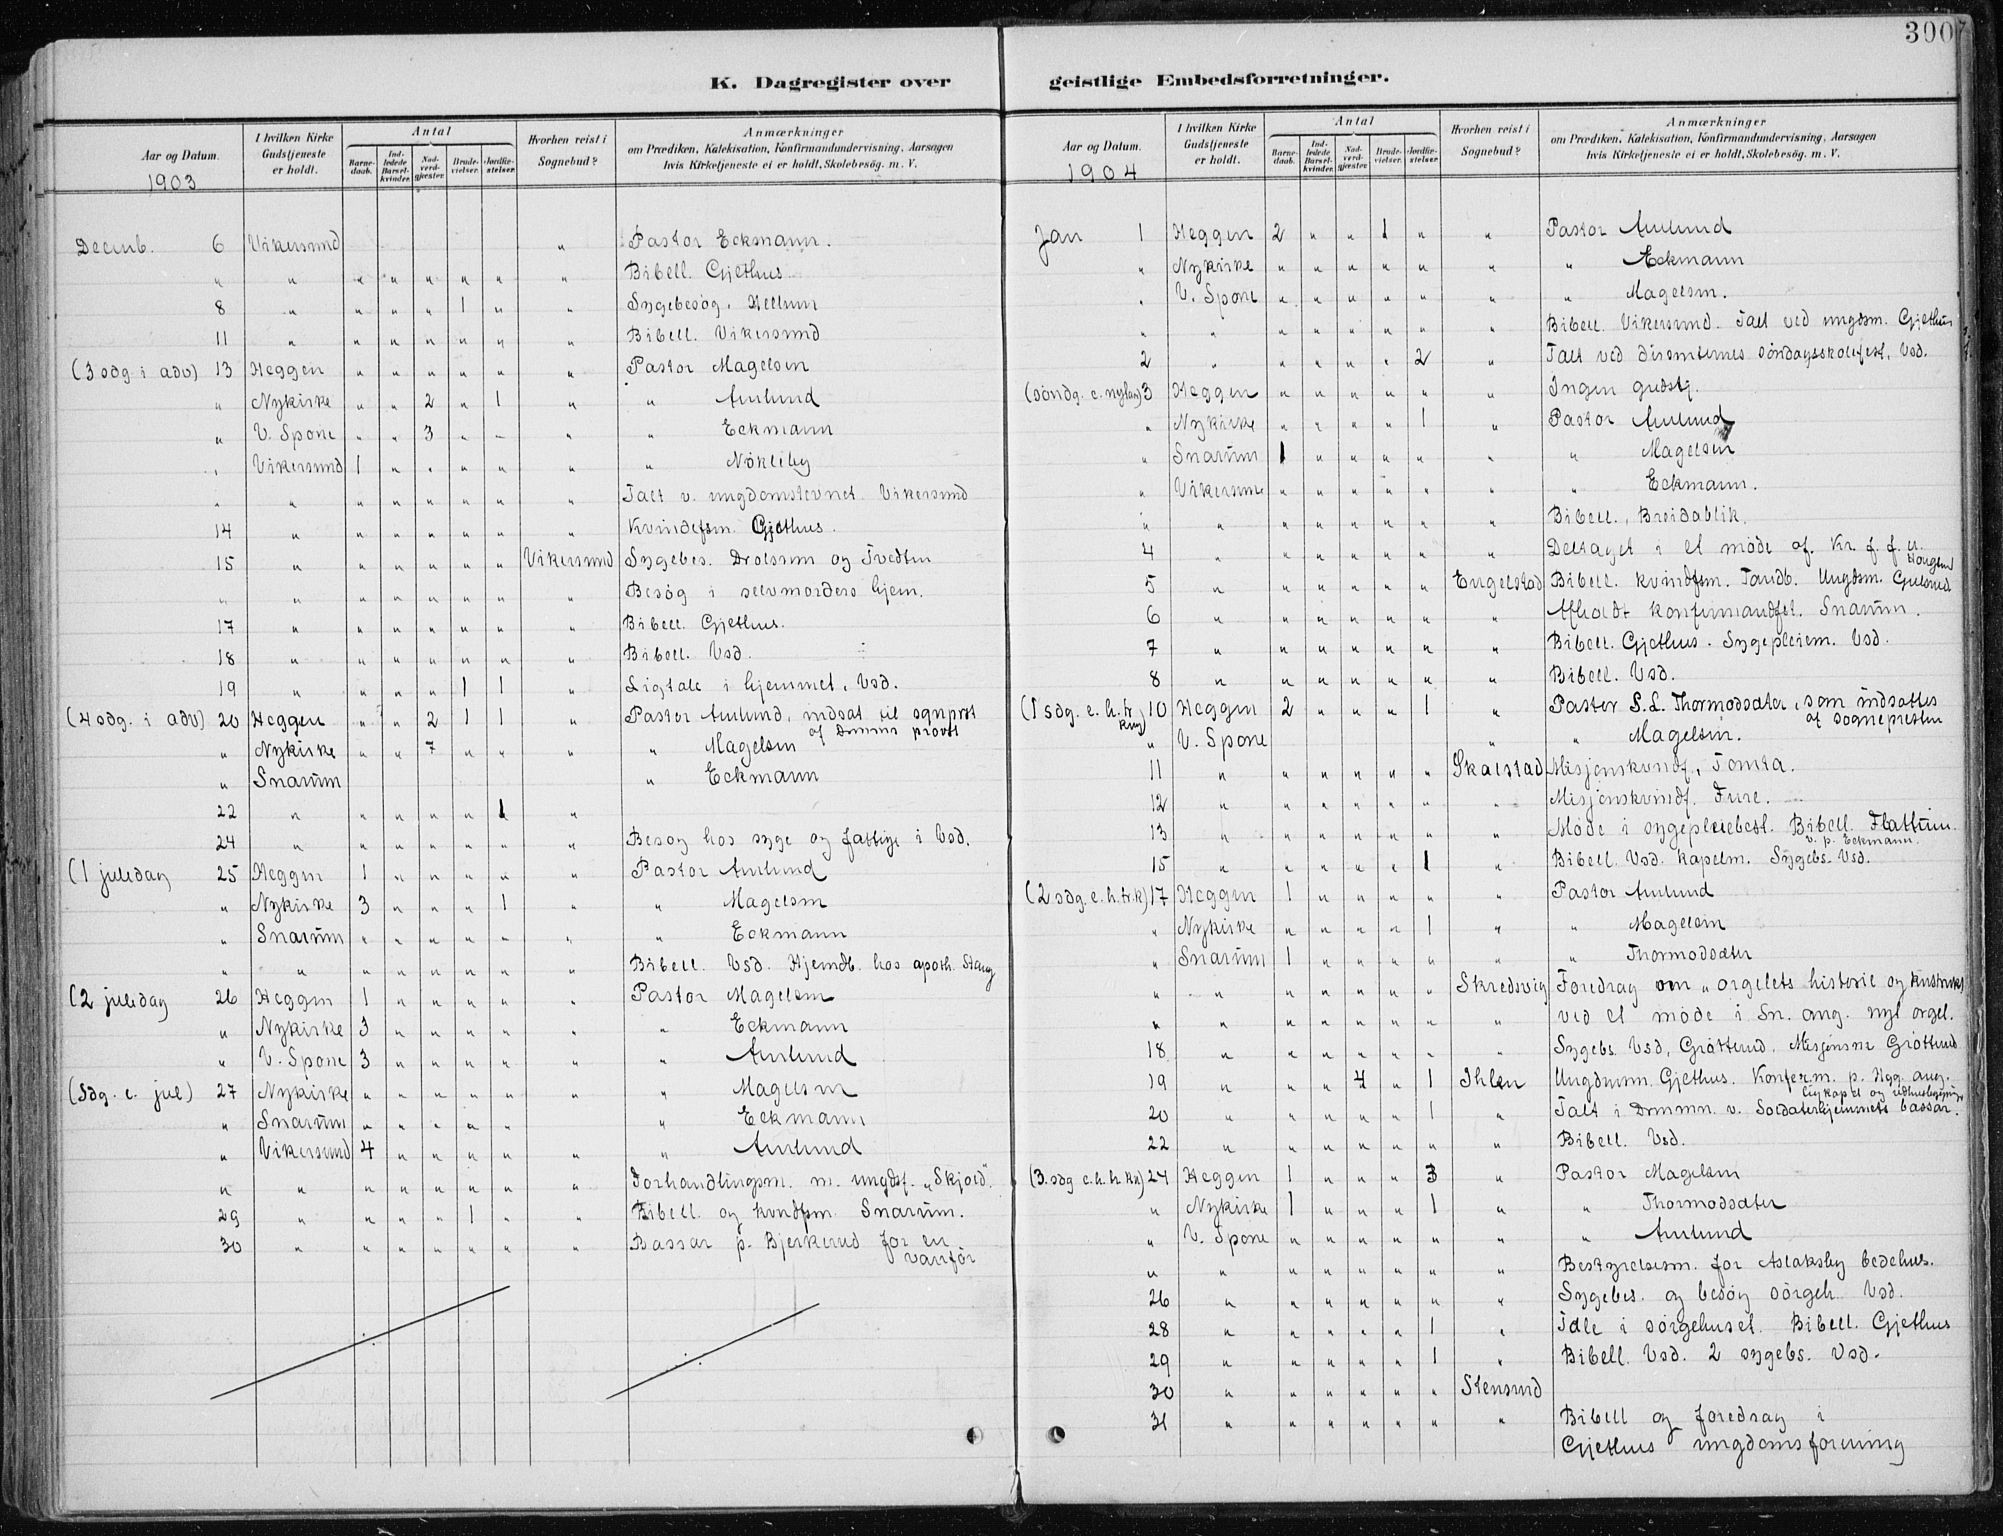 300
K. Dagregister over geistlige Embedsforretninger.
Aar og Datum. I hvilken Kirke Gudstjeneste er holdt. Antal Barnedaab. Indledede Barselkvinder. Nadverdgjester. Brudevielser. Jordfæstelser. Hvorhen reist i Sognebud? Anmærkninger om Prædiken, Katekisation, Konfirmandundervisning, Aarsagen hvis Kirketjeneste ei er holdt, Skolebesøg. m. V.
1903
Decmb. 6 Vikersund " Pastor Eckmann.
" " " " " " " " Bibell. Gjethus.
8 " " " " 1 " " Sygebesøg. Hellum
11 " " " " " " " Bibell. Vikersund
(3 sdg i adv) 13 Heggen " " " " " " Pastor Magelsen
" Nykirke " " 2 " 1 " " Amlund
" V. Spone " " 3 " " " " Eckmann
" Vikersund 1 " " " " " " Nökleby
" " " " " " " " Talt v. ungdomstevnet Vikersund
14 " " " " " " " Kvindefsm. Gjethus.
15 " " " " " " Vikersund Sygebes. Drolsum og Tvedten
" " " " " " " " Besøg i selvmorders hjem.
17 " " " " " " " Bibell. Gjethus.
18 " " " " " " " Bibell. Vsd.
19 " " " " 1 1 " Ligtale i hjemmet, Vsd.
(4 sdg. i adv) 20 Heggen " " 2 1 1 " Pastor Amlund, indsat til sgnprst
af Drmns provst
" Nykirke " " 7 " " " " Magelsen
" Snarum " Eckmann
22 " " " " " 1 "
24 " " " " " " " Besøg hos syge og fattige i Vsd.
(1 juledag 25 Heggen 1 " " " " " Pastor Amlund
" Nykirke 3 " " " 1 " " Magelsen
" Snarum " " " " " " " Eckmann
" " " " " " " " Bibell. Vsd. Hjemdb. hos apoth. Stang
(2 juledag 26 Heggen 1 " " " " " Pastor Magelsen
" Nykirke 3 " " " " " " Eckmann
" V. Spone 3 " " " " " " Amlund
(Sdg. e. jul) 27 Nykirke " " " " " " " Magelsen
" Snarum " " " " " " Eckmann
" Vikersund 4 " " " " " " Amlund
" " " " " " " " Forhandlingsm. m. ungdsf. „Skjold“.
29 " " " " 1 " " Bibell og kvndfsm. Snarum.
30 " " " " " " " Bassar p. Bjerkerud for en
vanför
Aar og Datum. I hvilken Kirke Gudstjeneste er holdt. Antal Barnedaab. Indledede Barselkvinder. Nadverdgjester. Brudevielser. Jordfæstelser. Hvorhen reist i Sognebud? Anmærkninger om Prædiken, Katekisation, Konfirmandundervisning, Aarsagen hvis Kirketjeneste ei er holdt, Skolebesøg. m. V.
1904
Jan 1 Heggen 2 " " 1 " " Pastor Amlund
" Nykirke " " " " " " " Eckmann
" V. Spone " " " " " " " Magelsen.
" " " " " " " " Bibell. Vikersund. Talt ved ungdsm. Gjethus
2 " " " " " 2 " Talt ved dissenternes söndagsskolefest, Vsd.
(söndg. e. nytaar) 3 Heggen " " " " " " Ingen gudstj.
" Nykirke " " " " 1 " Pastor Amlund
" Snarum 1 " " " " " " Magelsen
" Vikersund " " " " " " " Eckmann.
" " " " " " " " Bibell., Breidablik.
4 " " " " " " " Deltaget i et möde af. Kr. f. f. u.
5 " " " " " " Engelstad Bibell. kvindfsm. Tandb. Ungdsm. Gulsrud
6 " " " " " " " Afholdt konfirmandfst. Snarum.
7 " " " " " " " Bibell. Gjethus. Sygepleiem. Vsd.
8 " " " " " " " Bibell. Vsd.
(1 sdg. e. h. tr. kng) 10 Heggen 2 " " " 1 " Pastor S. L. Thormodsæter, som indsattes
af sognepresten
" V. Spone " " Magelsen.
11 " " " " " " Skalstad Misjonskvindf., Tomta.
12 " " " " " " " Misjonskvindf. Fure.
13 " " " " " " " Möde i sygepleiebest. Bibell. Flattum.
v. p. Eckmann.
15 " " " " " 1 " Bibell. Vsd. kapelm. Sygebs. Vsd.
(2 sdg. e. h. tr. k) 17 Heggen 1 " " " " " Pastor Amlund
" Nykirke " " " " 1 " " Magelsen
" Snarum 1 " " " " " " Thormodsæter
" " " " " " " Skredsvig Foredrag om „orgelets historie og knstrukt
" " " " " " " " ved et möde i Sn. ang. nyt orgel.
18 " " " " " " " Sygebs. Vsd, Gröttrud. Misjonsm Gröttrud
19 " " " 4 " 1 Ihlen Ungdmsm. Gjethus. Konferm. p. Hgg. ang.
ligkapel og udhusbygning
20 " " " " " 1 " Talt i Drmmn. v. Soldaterhjemmets bassar.
22 " " " " " " " Bibell. Vsd.
(3. sdg e. h. tr. kn) 24 Heggen 1 " " " 3 " Pastor Magelsen
" Nykirke 1 " " " 1 " " Thormodsæter
" V. Spone " " " " " " " Amlund
" " " " " " " " Bestyrelsesm. for Aslaksby bedehus.
26 " " " " " " " Sygebes. og besög sörgeh. Vsd.
28 " " " " " 1 " Tale i sörgehuset. Bibell. Gjethus
29 " " " " " 1 " Bibell. Vsd. 2 sygebs. Vsd.
30 " " " " " " Stensrud
31 " " " " " " " Bibell og foredrag i
Gjethus ungdomsforening